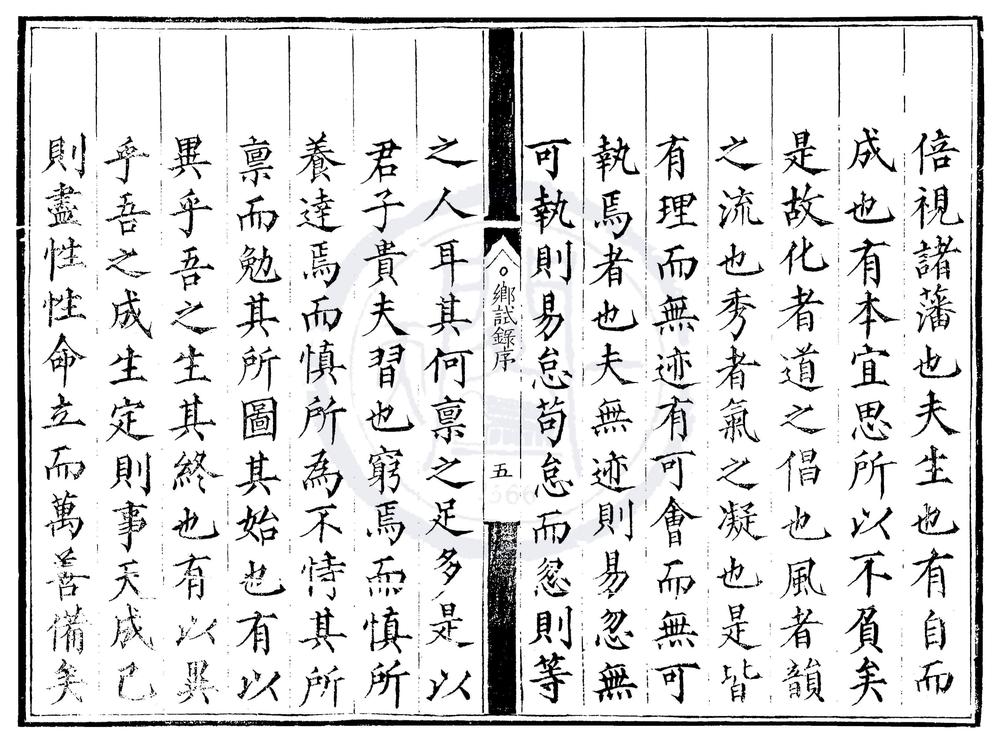 倍視諸藩也夫生也有自而
成也有本宜思所以不負矣
是故化者道之倡也風者韻
之流也秀者氣之凝也是皆
有理而無迹有可會而無可
執焉者也夫無迹則易忽無
可執則易怠苟怠而忽則等
鄉試錄序
五
之人耳其何禀之足多是以
君子貴夫習也窮焉而慎所
養達焉而慎所為不恃其所
禀而勉其所圖其始也有以
異乎吾之生其終也有以異
乎吾之成生定則事天成已
則盡性性命立而萬善備矣